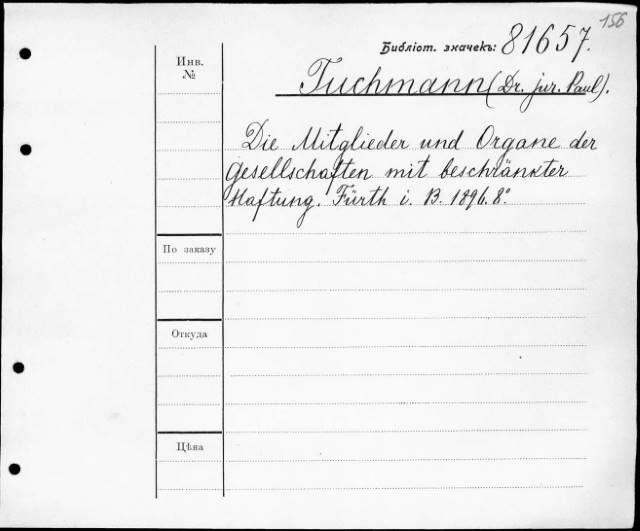 156
Библіот. значекъ: 81657.
Инв.
№
Tuchmann (Dr. jur. Paul).
Die Mitglieder und Organe der
Gesellschaften mit beschränkter
Haftung. Fürth i. B. 1896. 8°
По заказу
Откуда
Цѣна